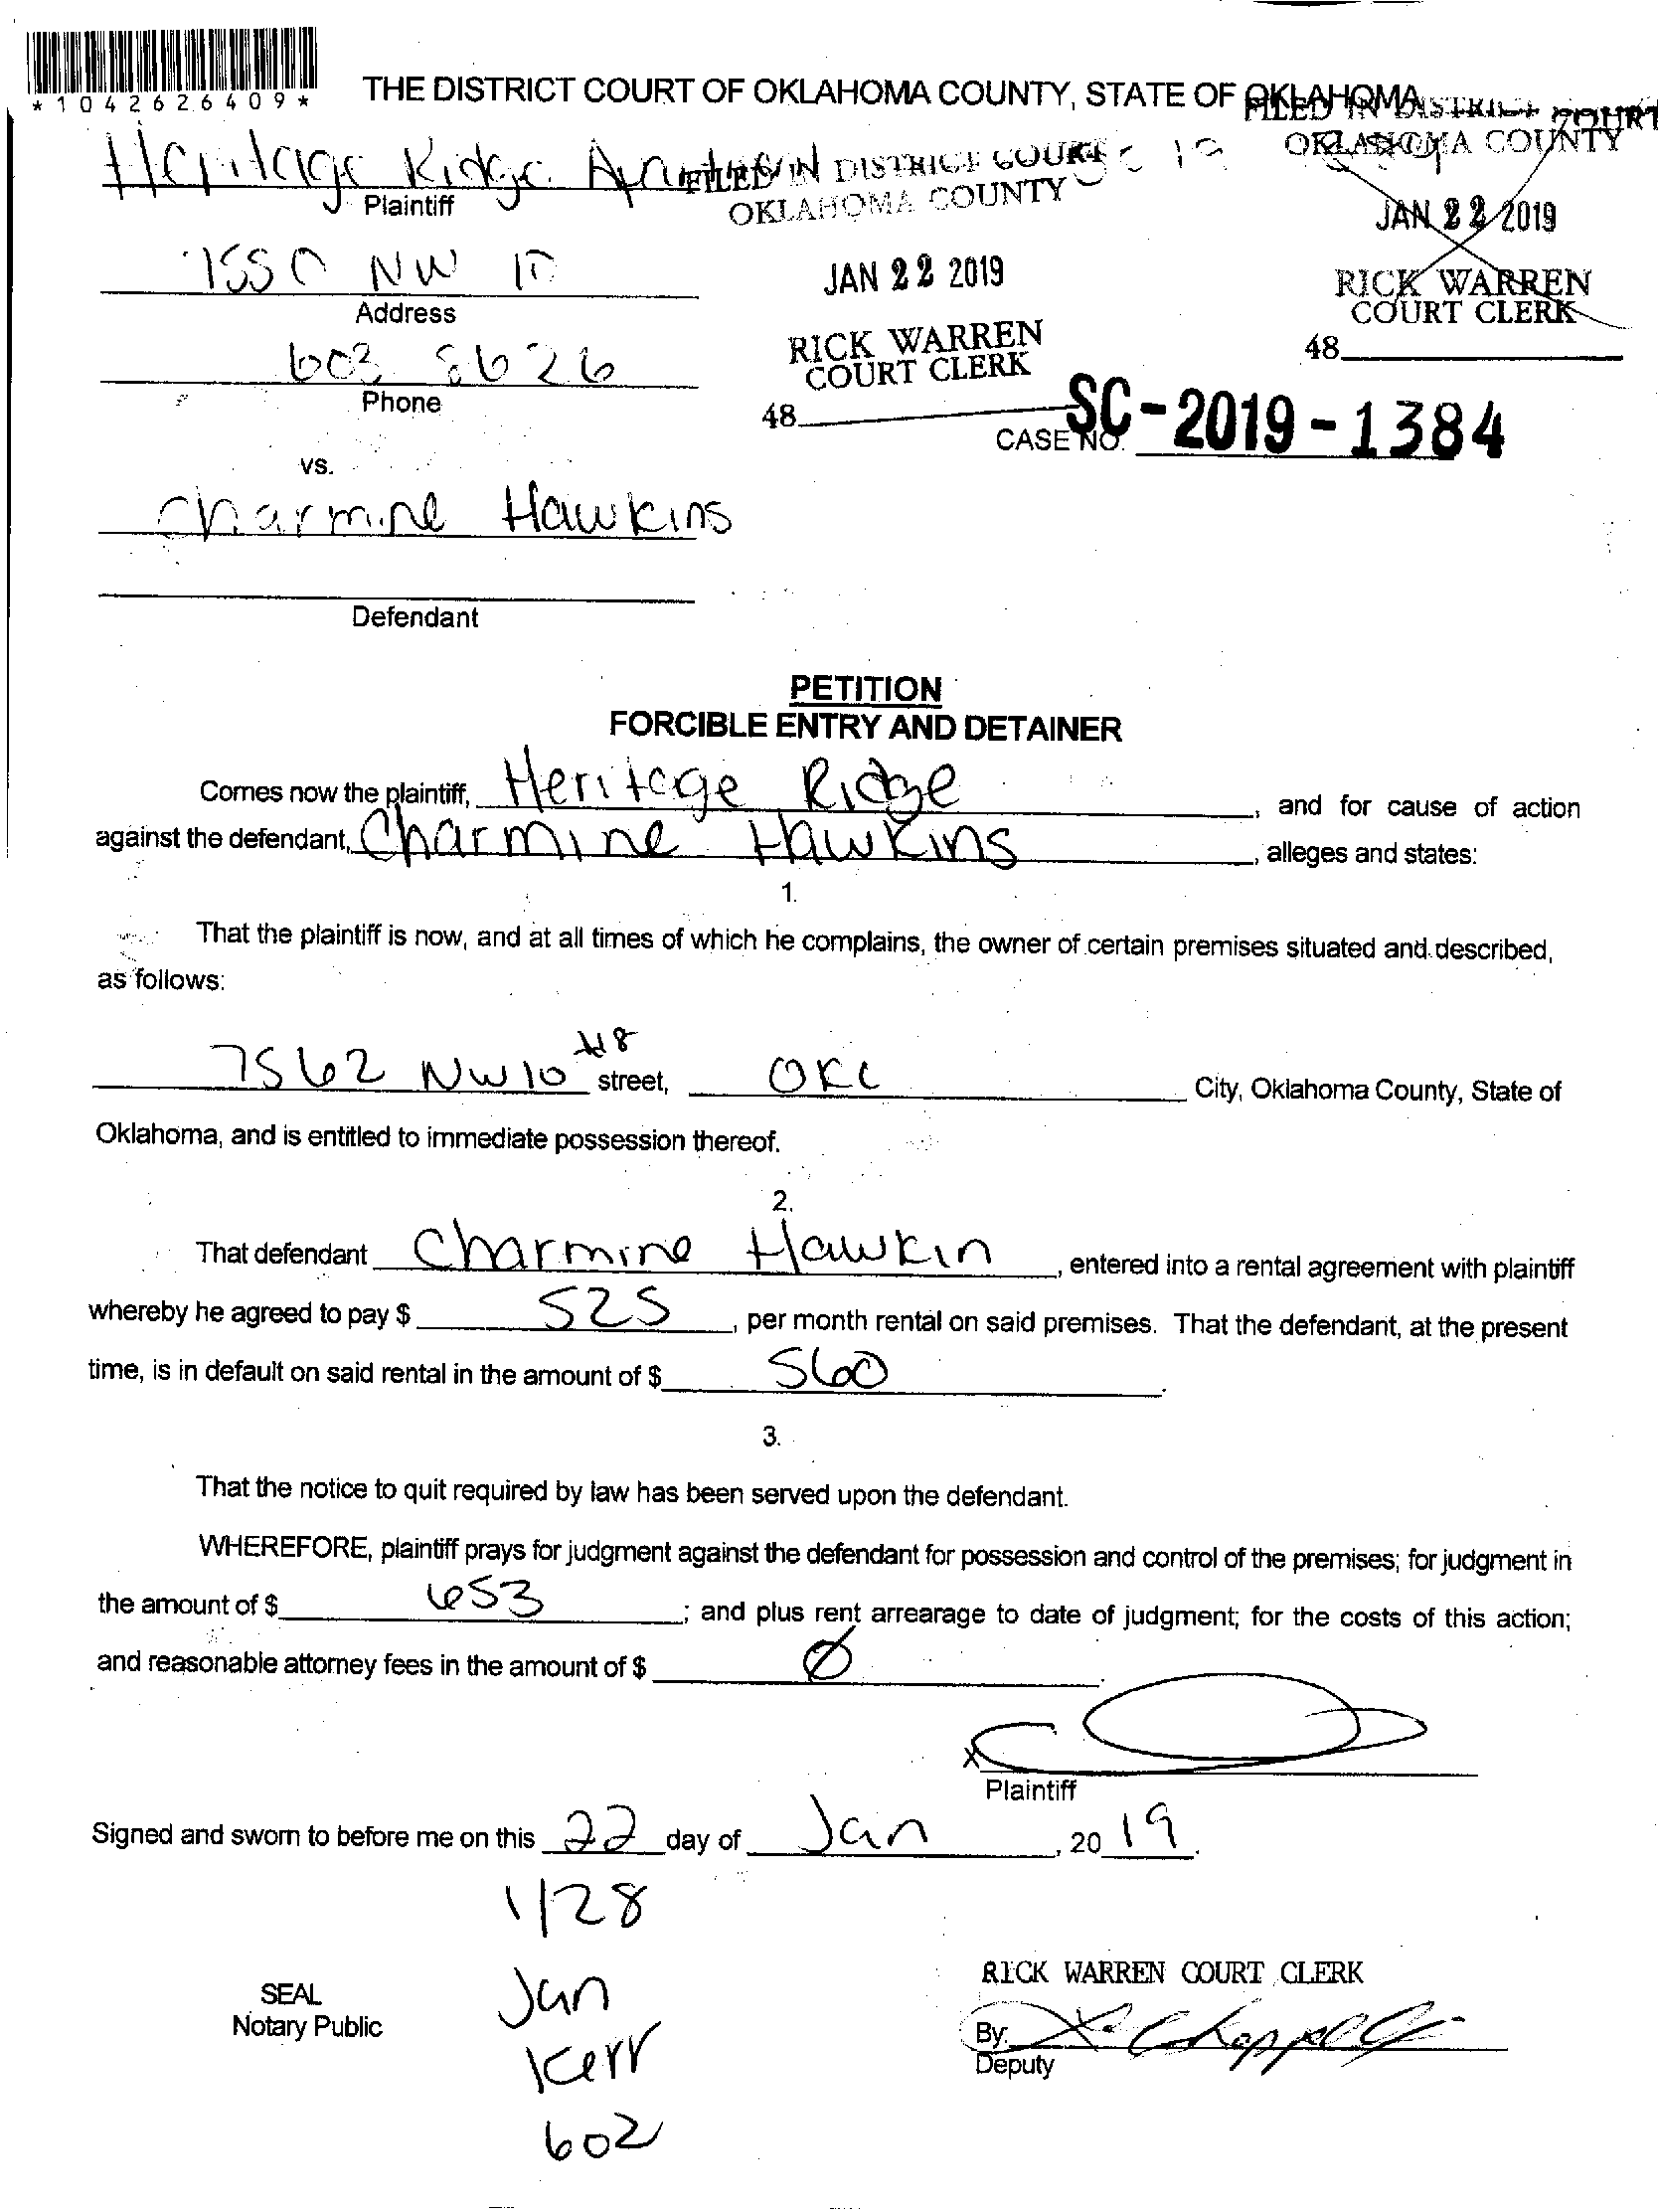 *1042626409*
THE DISTRICT COURT OF OKLAHOMA COUNTY, STATE OF OKLAHOMA
FILED IN DISTRICT COURT
OKLAHOMA COUNTY
JAN 22 2019
RICK WARREN
COURT CLERK
48
Heritage Ridge
Plaintiff
FILED IN DISTRICT COURT
OKLAHOMA COUNTY
JAN 22 2019
RICK WARREN
COURT CLERK
48
7550 NW 10
Address
603 8626
Phone
CASE NO. SC-2019-1384
vs.
Charmine Hawkins
Defendant
PETITION
FORCIBLE ENTRY AND DETAINER
Comes now the plaintiff, Heritage Ridge, and for cause of action
against the defendant, Charmine Hawkins, alleges and states:
1.
That the plaintiff is now, and at all times of which he complains, the owner of certain premises situated and described,
as follows:
7562 NW 10 #8 street, OKC City, Oklahoma County, State of
Oklahoma, and is entitled to immediate possession thereof.
2.
That defendant Charmine Hawkin, entered into a rental agreement with plaintiff
whereby he agreed to pay $ 525, per month rental on said premises. That the defendant, at the present
time, is in default on said rental in the amount of $ 560.
3.
That the notice to quit required by law has been served upon the defendant.
WHEREFORE, plaintiff prays for judgment against the defendant for possession and control of the premises; for judgment in
the amount of $ 653; and plus rent arrearage to date of judgment; for the costs of this action;
and reasonable attorney fees in the amount of $ Ø.
x
Plaintiff
Signed and sworn to before me on this 22 day of Jan, 20 19.
1/28
Jan
Kerr
602
SEAL
Notary Public
RICK WARREN COURT CLERK
By: Chappell
Deputy